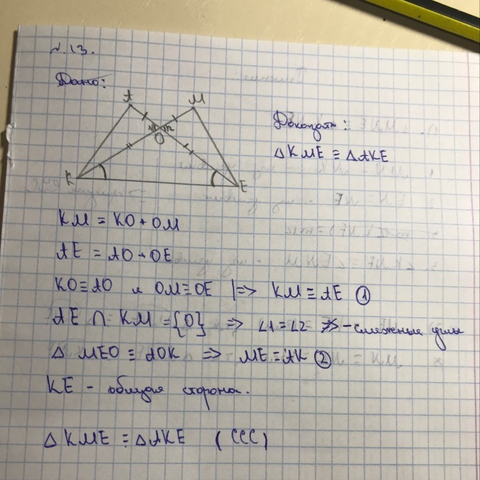 № 13.
Дано:
A
M
Доказать:
O
△ KME ≡ △ AKE
K
E
KM = KO + OM
AE = AO + OE
KO ≡ AO и OM ≡ OE |=> KM ≡ AE ①
AE ∩ KM = {O} => ∠1 = ∠2 - смежные углы
△ MEO ≡ AOK => ME = AK ②
KE - общая сторона.
△ KME ≡ △ AKE (ССС)